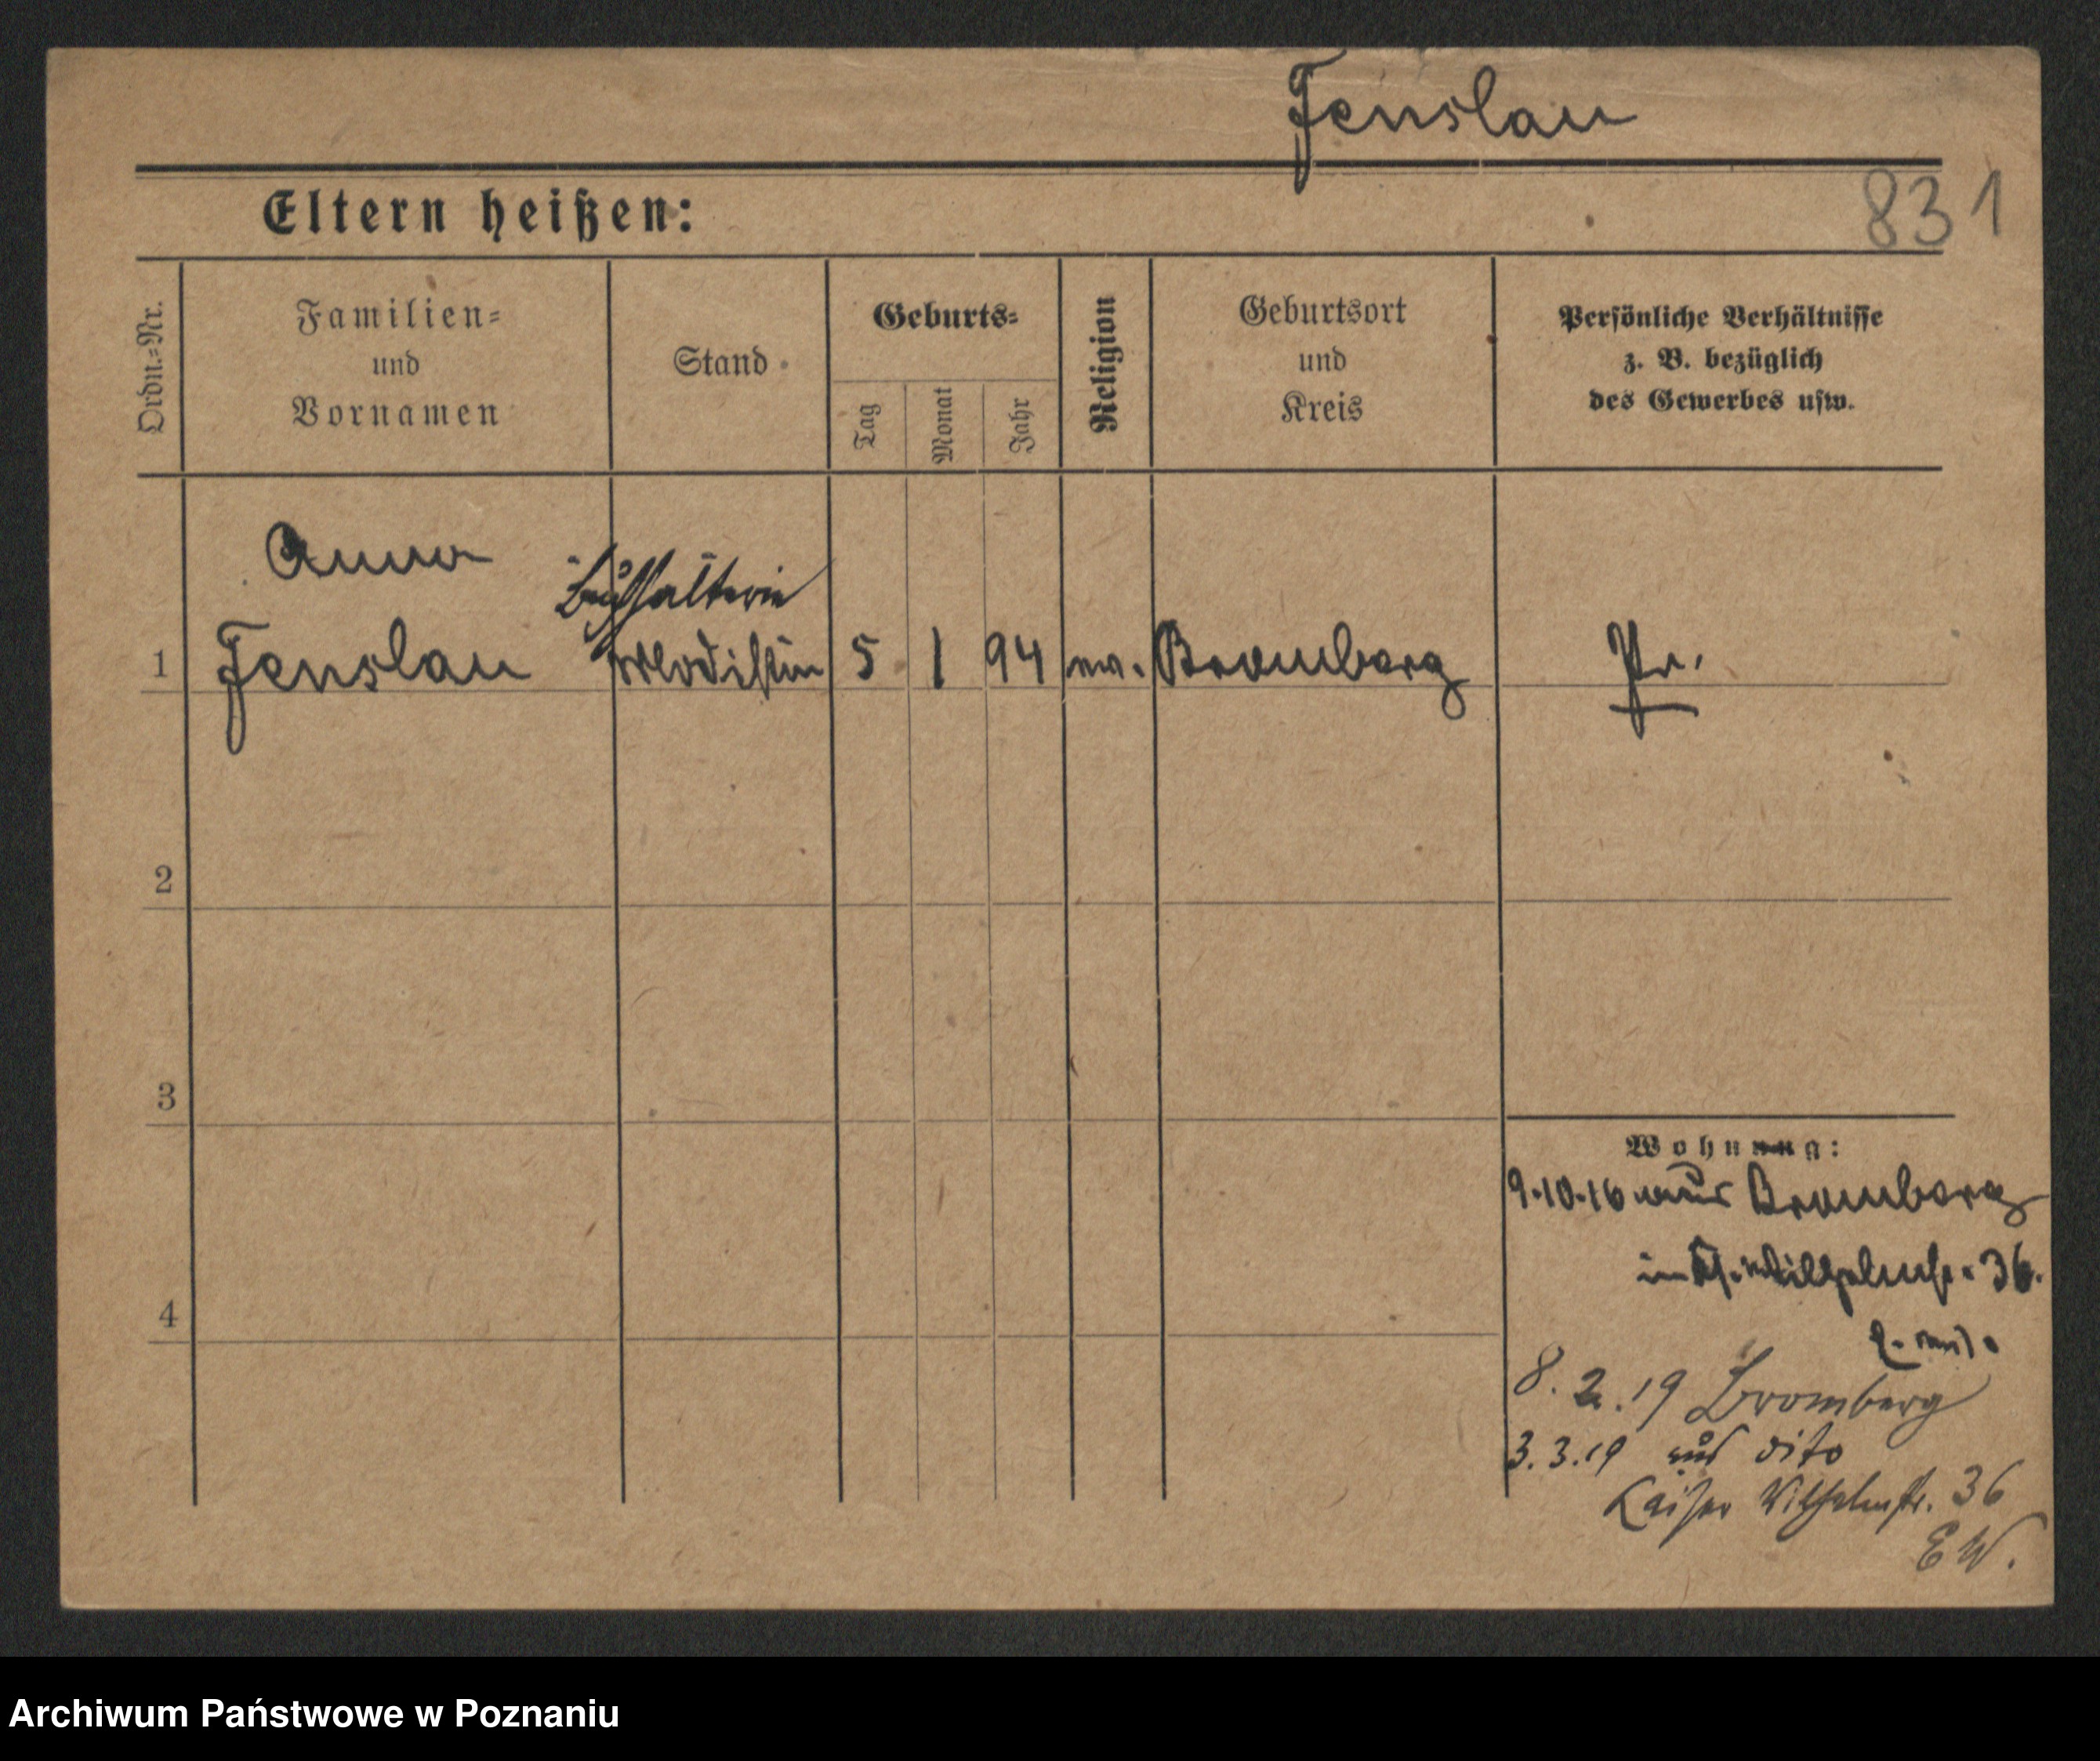 Fenslau
831
Eltern heißen:
Ordn.=Nr.
Familien=
und
Vornamen
Stand
Geburts=
Tag
Monat
Jahr
Religion
Geburtsort
und
Kreis
Persönliche Verhältnisse
z. B. bezüglich
des Gewerbes usw.
Anna
Buchhalterin
1 Fenslau Modistin 5 1 94 ev. Bromberg Pr.
2
3
4
Wohnung:
9.10.16 aus Bromberg
in Ks. Wilhelmstr. 36.
8.2.19 Bromberg
3.3.19 aus dito
Kaiser Wilhelmstr. 36
E W.
Archiwum Państwowe w Poznaniu